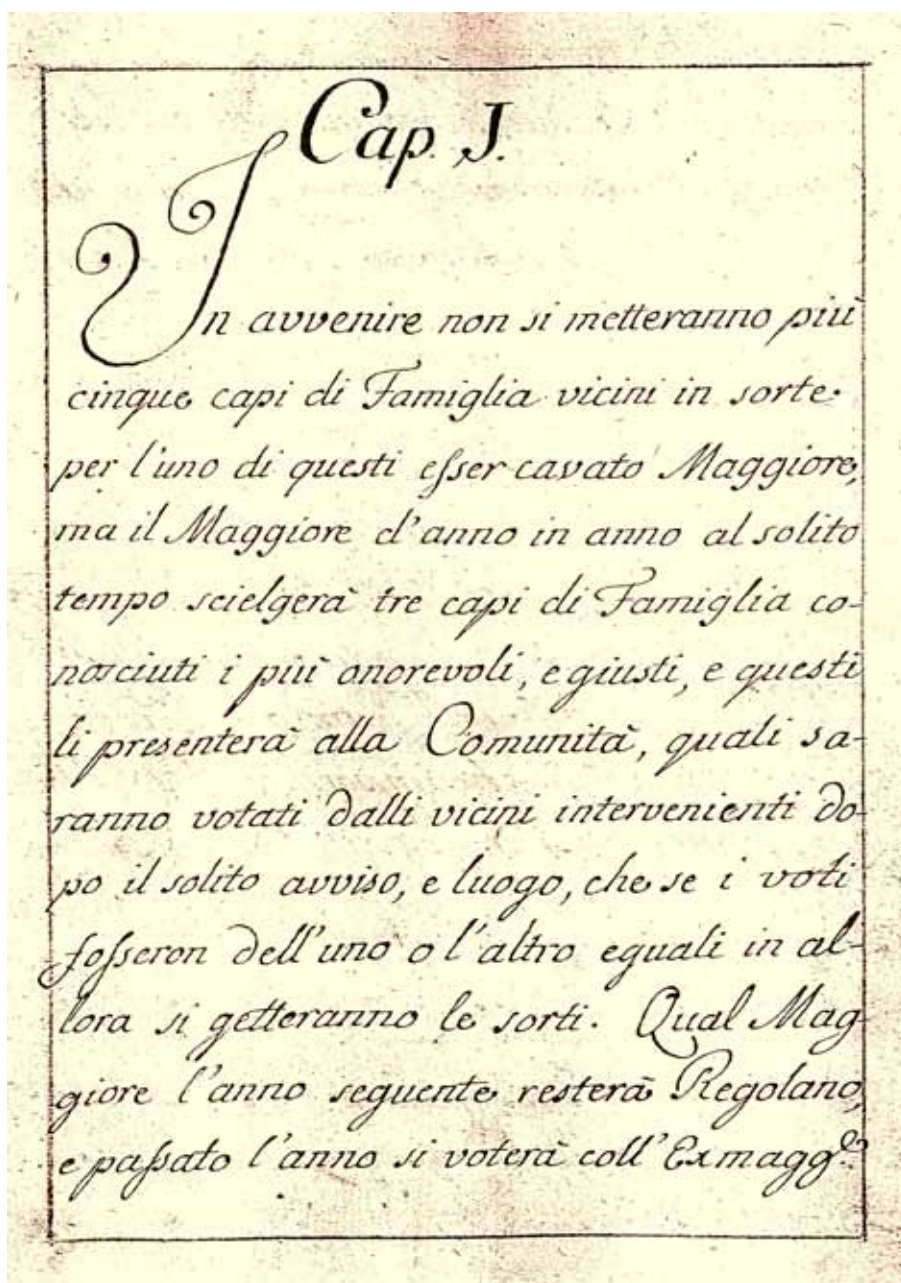 Cap. I.
In avvenire non si metteranno più
cinque capi di Famiglia vicini in sorte
per l'uno di questi esser cavato Maggiore,
ma il Maggiore d'anno in anno al solito
tempo scielgerà tre capi di Famiglia co-
nosciuti i più onorevoli, e giusti, e questi
li presenterà alla Comunità, quali sa-
ranno votati dalli vicini intervenienti do-
po il solito avviso, e luogo, che se i voti
fosseron dell'uno o l'altro eguali in al-
lora si getteranno le sorti. Qual Mag-
giore l'anno seguente resterà Regolano,
e passato l'anno si voterà coll'Exmagg.e